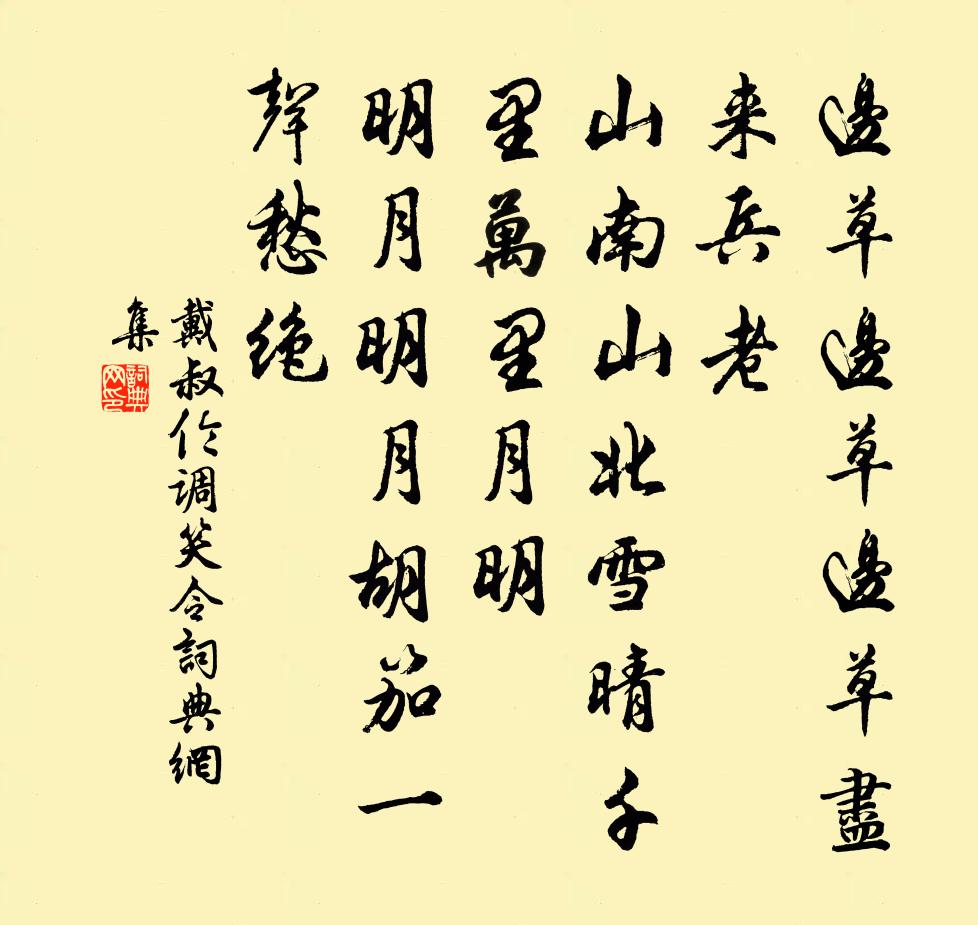 邊草邊草邊草盡
来兵老
山南山北雪晴千
里萬里月明
明月明月胡笳一
聲愁絶
戴叔伦调笑令詞典網
集
詞典網印